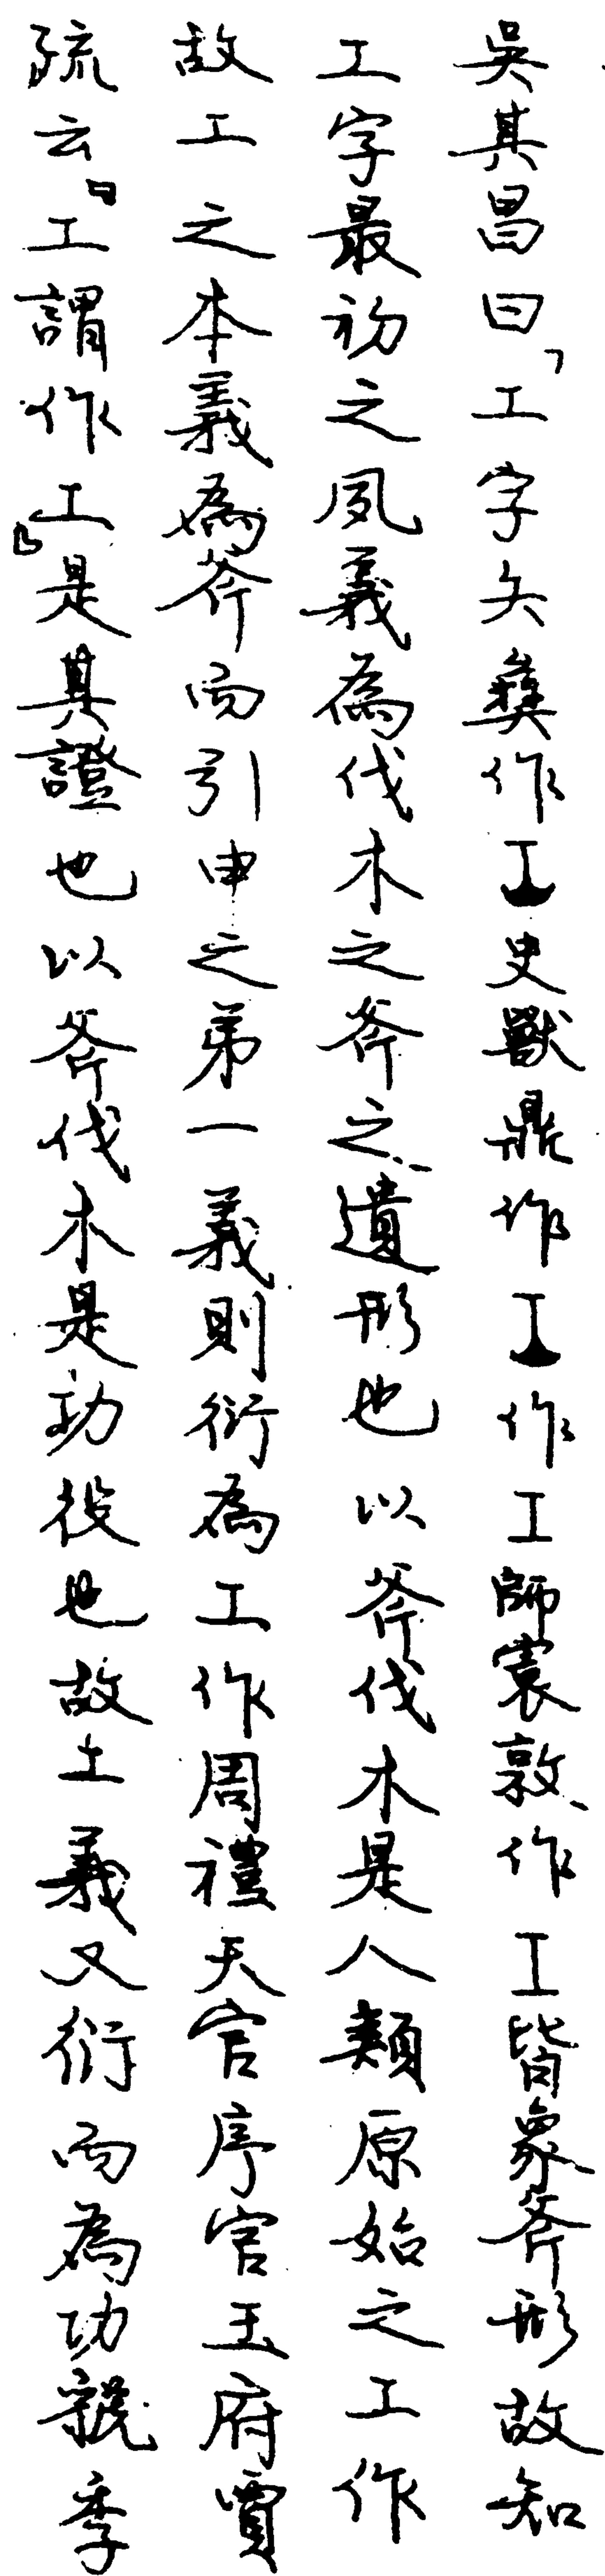 吳其昌曰「工字矢彝作工史獸鼎作工作工師寰敦作工皆象斧形故知
工字最初之夙義為伐木之斧之遺形也以斧伐木是人類原始之工作
故工之本義為斧而引申之弟一義則衍為工作周禮天官序官玉府賈
疏云『工謂作工』是其證也以斧伐木是功役也故工義又衍而為功虢季